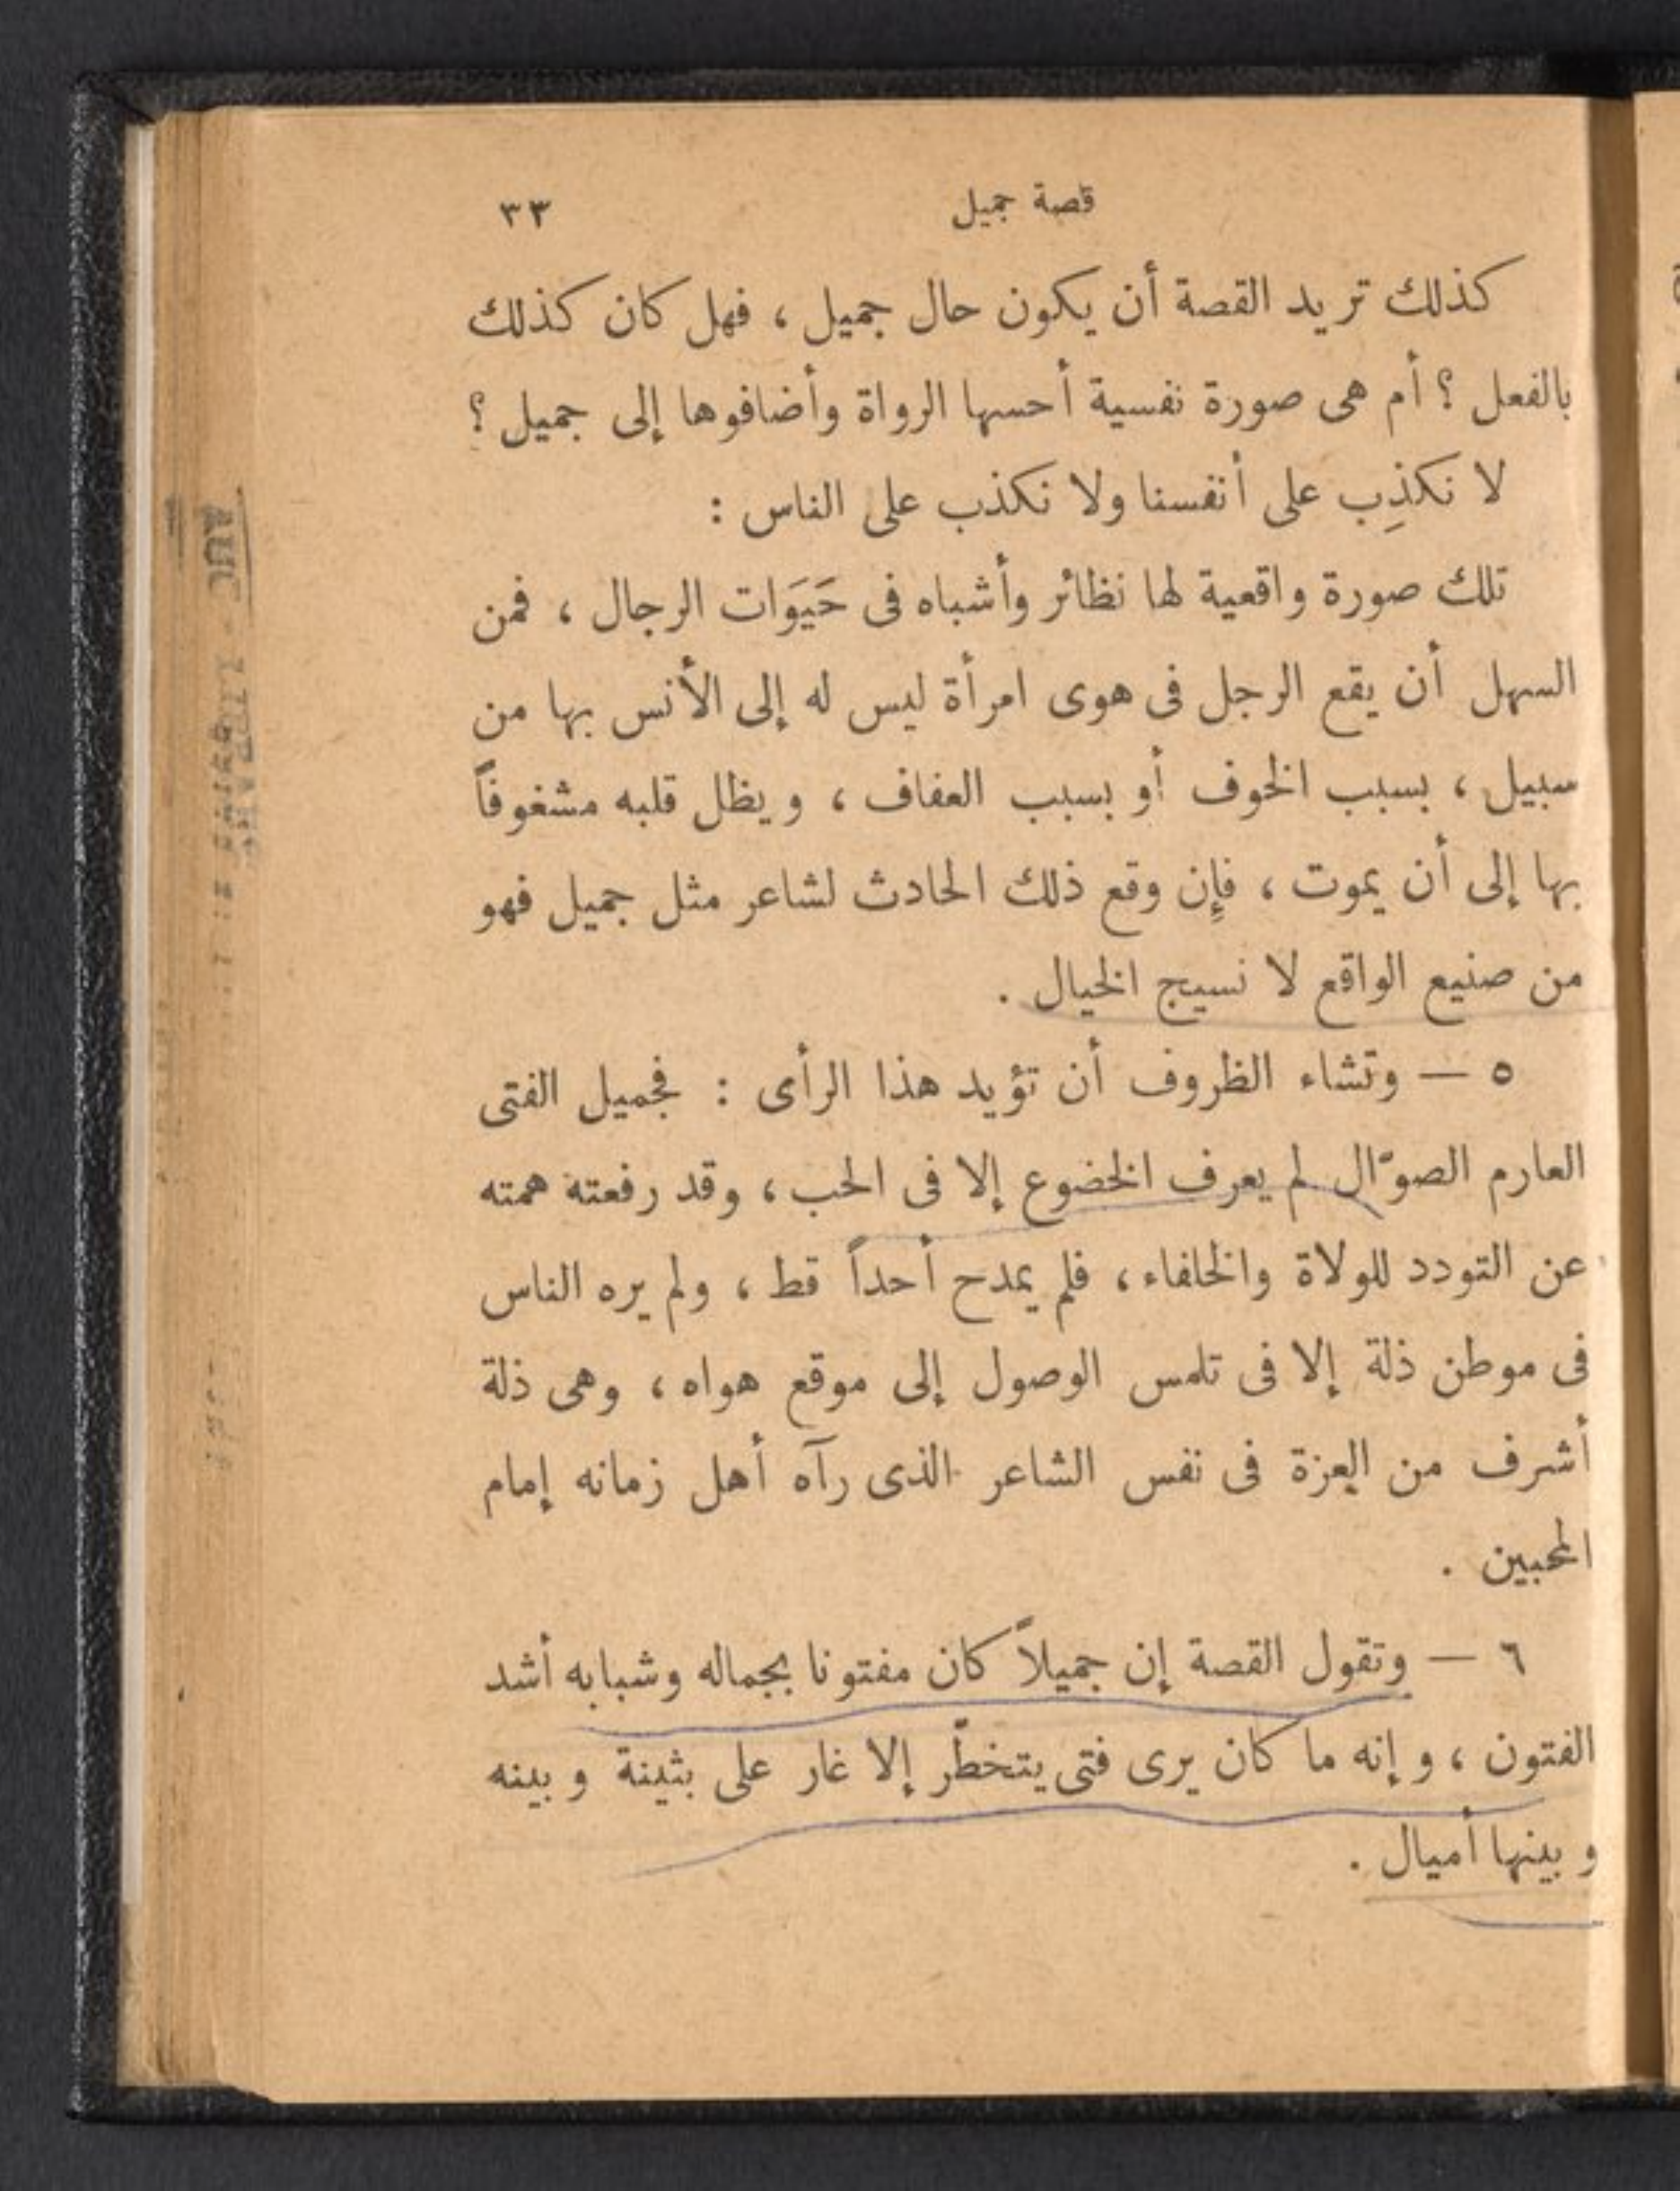 قصة جميل ٣٣
كذلك تريد القصة أن يكون حال جميل ، فهل كان كذلك
بالفعل ؟ أم هى صورة نفسية أحسها الرواة وأضافوها إلى جميل ؟
لا نكذِب على أنفسنا ولا نكذب على الناس :
تلك صورة واقعية لها نظائر وأشباه فى حَيَوَات الرجال ، فمن
السهل أن يقع الرجل فى هوى امرأة ليس له إلى الأنس بها من
سبيل ، بسبب الخوف أو بسبب العفاف ، ويظل قلبه مشغوفاً
بها إلى أن يموت ، فإن وقع ذلك الحادث لشاعر مثل جميل فهو
من صنيع الواقع لا نسيج الخيال .
٥ — وتشاء الظروف أن تؤيد هذا الرأى : فجميل الفتى
العارم الصوّال لم يعرف الخضوع إلا فى الحب ، وقد رفعته همته
عن التودد للولاة والخلفاء ، فلم يمدح أحداً قط ، ولم يره الناس
فى موطن ذلة إلا فى تلمس الوصول إلى موقع هواه ، وهى ذلة
أشرف من العزة فى نفس الشاعر الذى رآه أهل زمانه إمام
المحبين .
٦ — وتقول القصة إن جميلاً كان مفتونا بجماله وشبابه أشد
الفتون ، وإنه ما كان يرى فتى يتخطّر إلا غار على بثينة وبينه
وبينها أميال .